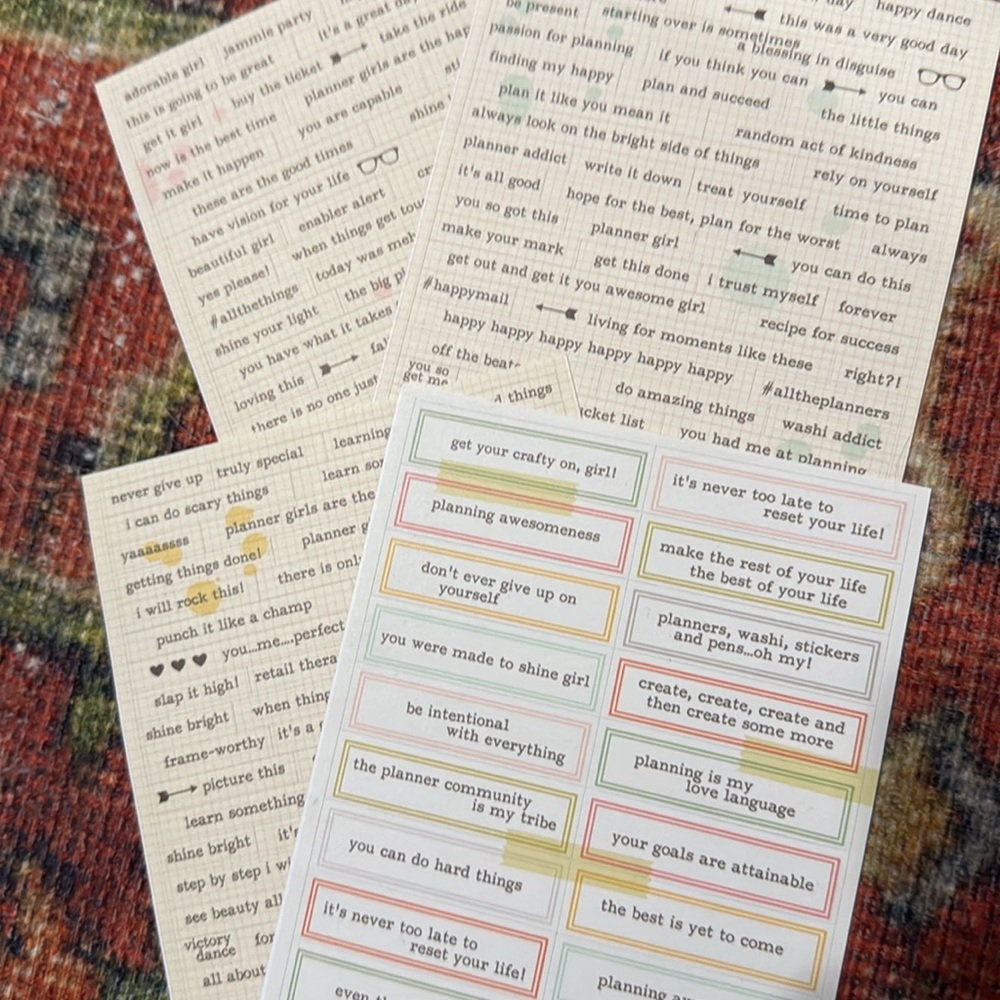 adorable girl jammie party
this is going to be great it's a great
get it girl buy the ticket take the ride
now is the best time planner girls are the
make it happen you are capable
these are the good times shine
have vision for your life
beautiful girl enabler alert
yes please! when things get
#allthings today was
shine your light the big
you have what it takes
loving this
there is no one just
be present starting over is sometimes
a blessing in disguise
day happy dance
this was a very good day
passion for planning if you think you can you can
finding my happy plan and succeed the little things
plan it like you mean it random act of kindness
always look on the bright side of things rely on yourself
planner addict write it down treat yourself time to plan
it's all good hope for the best, plan for the worst always
you so got this planner girl you can do this
make your mark get this done i trust myself forever
get out and get it you awesome girl recipe for success
#happymail living for moments like these right?!
happy happy happy happy happy happy happy #alltheplanners
off the do amazing things washi addict
list you had me at planning
you so
get me
things
never give up truly special learning
i can do scary things learn
yaaaassss planner girls are the
getting things done! planner
i will rock this! there is
punch it like a champ
you...me....perfect
slap it high! retail
shine bright when
frame-worthy it's a
picture this
learn something
shine bright it's
step by step i
see beauty
victory
dance
all about
get your crafty on, girl!
planning awesomeness
don't ever give up on
yourself
you were made to shine girl
be intentional
with everything
the planner community
is my tribe
you can do hard things
it's never too late to
reset your life!
even
it's never too late to
reset your life!
make the rest of your life
the best of your life
planners, washi, stickers
and pens...oh my!
create, create, create and
then create some more
planning is my
love language
your goals are attainable
the best is yet to come
planning